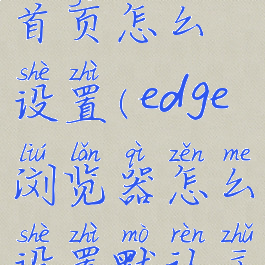 首页怎么
shè zhì
设置(edge
liú lǎn qì zěn me
浏览器怎么
shè zhì mò rèn zhǔ
设置默认主